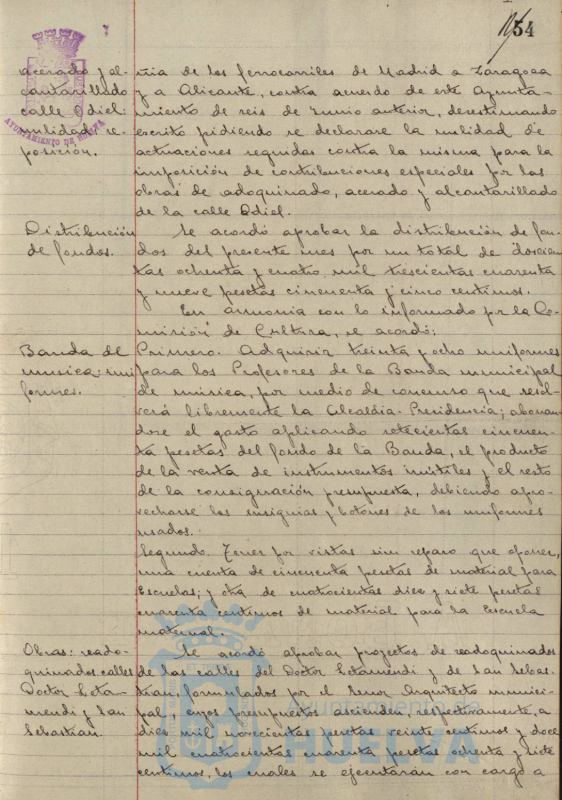 54
acerado y al-
cantarillado
calle Odiel:
nulidad re-
posición.
AYUNTAMIENTO DE HUELVA
ñia de los ferrocarriles de Madrid a Zaragoza
y a Alicante, contra acuerdo de este Ayunta-
miento de seis de Junio anterior, desestimando
escrito pidiendo se declarare la nulidad de
actuaciones seguidas contra la misma para la
imposición de contribuciones especiales por las
obras de adoquinado, acerado y alcantarillado
de la calle Odiel.
Distribución
de fondos.
Se acordó aprobar la distribución de fon-
dos del presente mes por un total de doscien-
tas ochenta y cuatro mil trescientas cuarenta
y nueve pesetas cincuenta y cinco centimos.
En armonia con lo informado por la Co-
misión de Cultura, se acordó:
Banda de
música: uni-
formes.
Primero. Adquirir treinta y ocho uniformes
para los Profesores de la Banda municipal
de música, por medio de concurso que resol-
verá libremente la Alcaldia-Presidencia; abonan-
dose el gasto aplicando setecientas cincuen-
ta pesetas del fondo de la Banda, el producto
de la venta de instrumentos inútiles y el resto
de la consignación presupuesta, debiendo apro-
vecharse las insignias y botones de los uniformes
usados.
Segundo. Tener por vistas sin reparo que oponer,
una cuenta de cincuenta pesetas de material para
Escuelas; y otra de cuatrocientas diez y siete pesetas
cuarenta centimos de material para la Escuela
maternal.
Obras: reado-
quinados calles
Doctor Leta-
mendi y San
Sebastian.
Se acordó aprobar proyectos de readoquinados
de las calles del Doctor Letamendi y de San Sebas-
tian, formulados por el Senor Arquitecto munici-
pal, cuyos presupuestos ascienden, respectivamente, a
diez mil novecientas pesetas veinte centimos y doce
mil cuatrocientas cuarenta pesetas ochenta y siete
centimos, los cuales se ejecutarán con cargo a
Ayuntamiento de
HUELVA